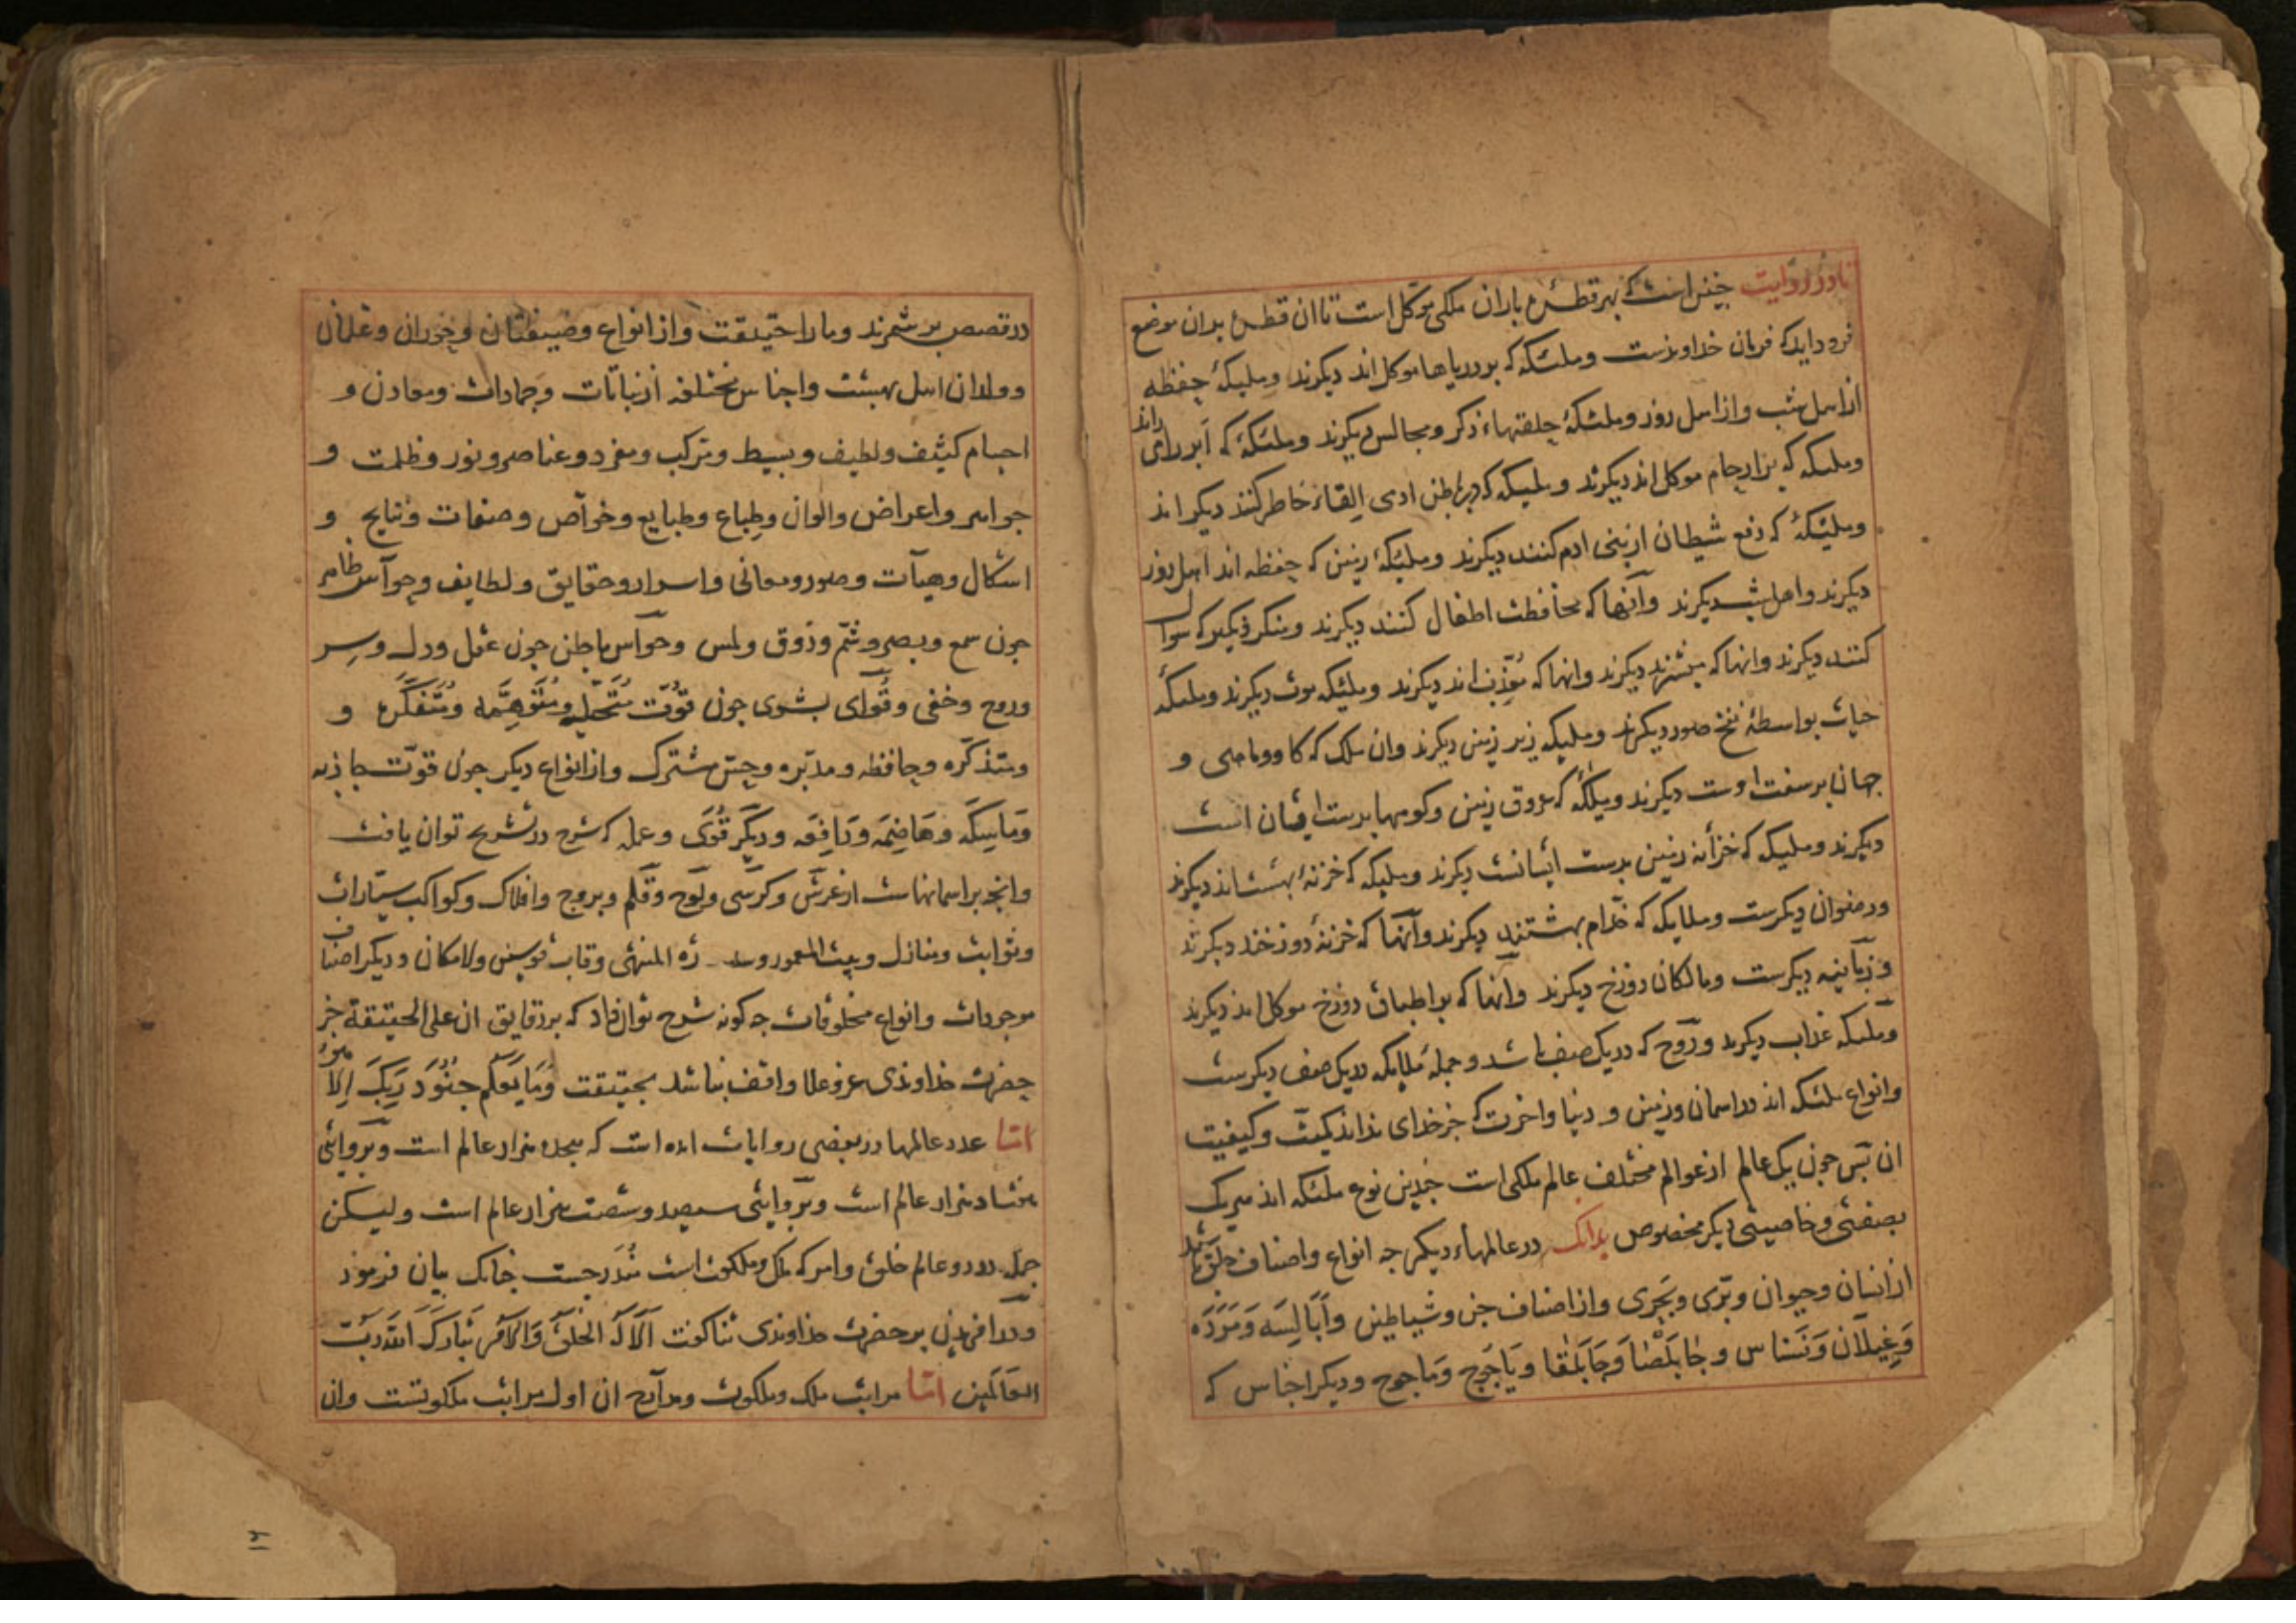 تا در روایت چنین است که بهر قطرهٔ باران ملکی موکل است تا ان قطره بدان موضع
فرود آید که فرمان خداوندست و ملئکه که بر دریاها موکل اند دیکرند و ملیکهٔ حفظه
از اهل شب و از اهل روز و ملئکهٔ حلقتهاء ذکر و مجالس دیکرند و ملئکهٔ که ابر رای راند
و ملیکه که بر ارحام موکل اند دیکرند و ملیکه که در باطن ادمی القاء خاطر کنند دیکراند
و ملیئکهٔ که دفع شیطان از بنی ادم کنند دیکرند و ملئکهٔ زمین که حفظه اند اهل روز
دیکرند و اهل شب دیکرند و آنها که محافظت اطفال کنند دیکرند و منکر و نکیر که سوال
کنند دیکرند و انها که مبشرند دیکرند و انها که اند دیکرند و ملیئکه موت دیکرند و ملیکهٔ
حیات بواسطهٔ نفخ صور دیکرند و ملیکه زیر زمین دیکرند وان ملک که کاو و ماهی و
جهان بر سفت اوست دیکرند و ملیکه که عروق زمین و کوهها بدست ایشان است
دیکرند و ملیکه که خزانه زمین بدست ایشانست دیکرند و ملیکه که خزنهٔ بهشت اند دیکرند
و رضوان دیکرست و ملایکه که خدام بهشتند دیکرند و آنها که خزنهٔ دوزخند دیکرند
و زبانیه دیکرست و مالکان دوزخ دیکرند و آنها که بر اطباق دوزخ موکل اند دیکرند
و ملیکه عذاب دیکرند و روح که در یک صف باشد و جملهٔ ملایکه در یک صف دیکرست
و انواع ملئکه اند در اسمان و زمین و دنیا و اخرت که جز خدای نداند کمیت و کیفیت
ان پس جون یک عالم از عوالم مختلف عالم ملکی است جندین نوع ملئکه اند هر یک
بصفتی و خاصیتی دیکر مخصوص بدانک در عالمهاء دیکر جه انواع و اصناف خلق باشد
از انسان و حیوان و بری و بحری و از اصناف جن و شیاطین و اَبَالِسَه وَ مَرَدَه
وَ غِیلَان وَ نَسناس و جابلصا وَ جابلقا و یاجوج و ماجوج و دیکر اجناس که
در قصص بر شمرند و ما را حقیقت و از انواع و و حوران و غلمان
و ولدان اهل بهشت و اجناس مختلفه از نباتات و جمادات و معادن و
اجسام کثیف و لطیف و بسیط و مرکب و مفرد و عناصر و نور و ظلمت و
جواهر و اعراض و الوان و طِباع و طبایع و خواص و صفات و نتایج و
اشکال و هیآت و صور و معانی و اسرار و حقایق و لطایف و حوآس ظاهر
جون سمع و بصر و شم و ذوق و لمس و حوآس باطن جون عقل و دل و سِر
و روح و خفی و قُوای بشری جون قوّت مُتَخَیّله و مُتَوَهِمَّه و مُتَفَکِّره و
و متذکّره و حافظه و مدبّره و حسّ مشترک و از انواع دیکر جون قوّت جاذبه
وَ مَاسِکَه وَ هَاضِمَه وَ دَافِعَه وَ دیکَر قُوَی و عمله که شرح در تشریح توان یافت
و انجه بر اسمانهاست از عَرش و کرسی و لَوح و قَلم و بروج و افلاک و کواکب سیّارات
و ثوابت و منازل و بیت المعمور و سدره المنتهی و قاب قوسین و لامکان و دیکر اصناف
موجودات و انواع مخلوقات جه کونه شرح توان داد که بر دقایق ان علی الحقیقة جز
حضرت خداوندی عز و علا واقف نباشد بحقیقت وَ مَا یَعلَم جُنُودَ رَبِّکَ اِلّا هُوَ
امّا عدد عالمها در بعضی روایات امده است که هجده هزار عالم است و بَروایتی
هفتاد هزار عالم است و بَروایتی سیصد و شصت هزار عالم است و لیکن
جمله در دو عالم خلق و امر که ملک و ملکوت است مُندَرجست جنانک بیان فرمود
و در آفریدن بر حضرت خداوندی ثنا کفت اَلَا لَهُ الخَلقُ وَ الاَمر تَبَارَکَ اللّه رَبّ
العَالَمین امّا مراتب ملک و ملکوت و مدارج ان اول مراتب ملکوتست وان
١٢